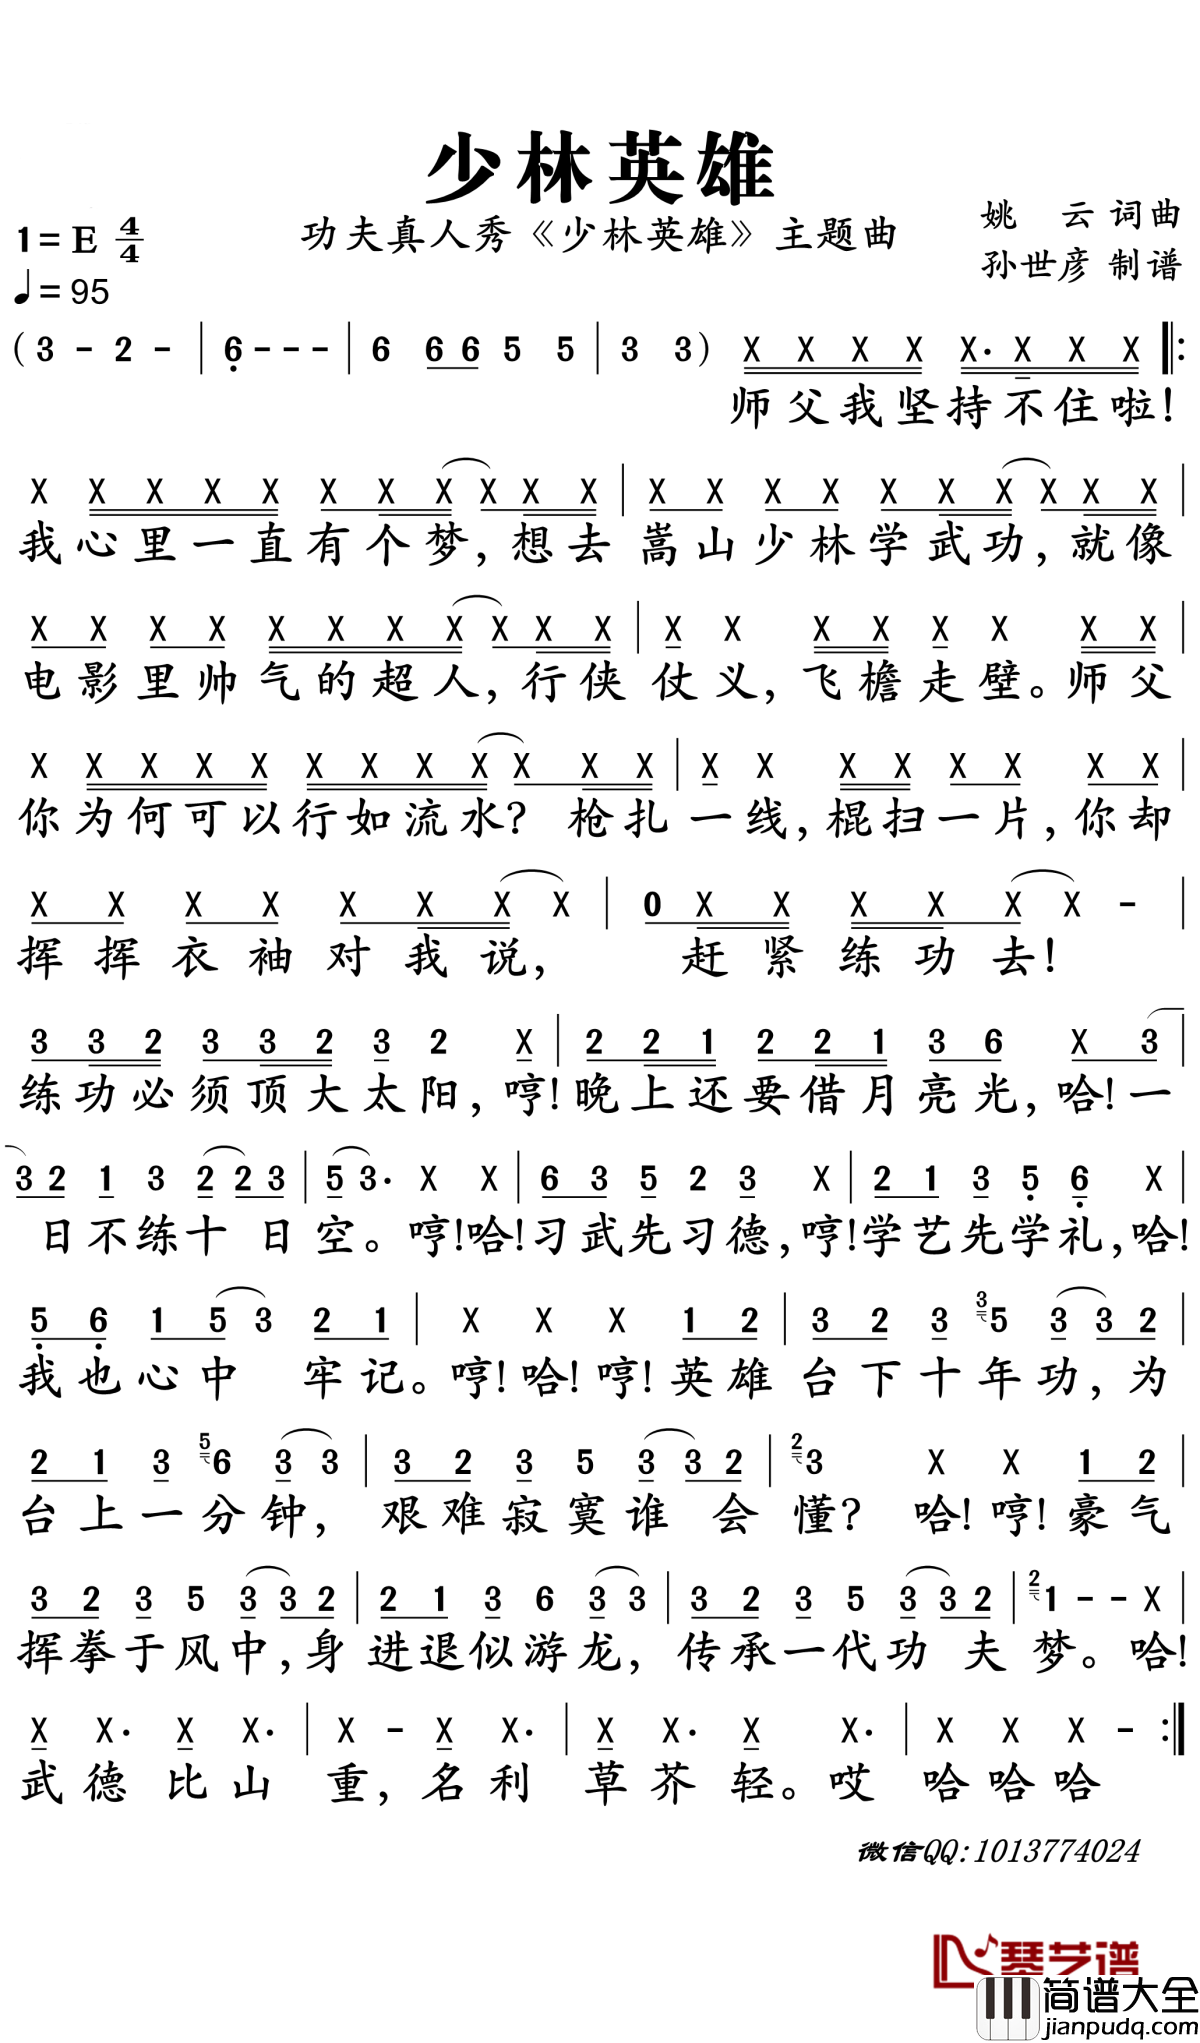 少林英雄
功夫真人秀《少林英雄》主题曲
姚 云 词曲
孙世彦 制谱
1=E 4/4
♩=95
( 3 - 2 - | 6 - - - | 6 6 6 5 5 | 3 3 ) X X X X X· X X X ‖:
师父我坚持不住啦!
X X X X X X X X X X X | X X X X X X X X X X |
我心里一直有个梦,想去嵩山少林学武功,就像
X X X X X X X X X X X | X X X X X X X X |
电影里帅气的超人,行侠仗义,飞檐走壁。师父
X X X X X X X X X X X X | X X X X X X X X |
你为何可以行如流水?枪扎一线,棍扫一片,你却
X X X X X X X X | 0 X X X X X X - |
挥挥衣袖对我说, 赶紧练功去!
3 3 2 3 3 2 3 2 X | 2 2 1 2 2 1 3 6 X 3 |
练功必须顶大太阳,哼!晚上还要借月亮光,哈!一
3 2 1 3 2 2 3 | 5 3· X X | 6 3 5 2 3 X | 2 1 3 5 6 X |
日不练十日空。哼!哈!习武先习德,哼!学艺先学礼,哈!
5 6 1 5 3 2 1 | X X X 1 2 | 3 2 3 3 5 3 3 2 |
我也心中牢记。哼!哈!哼!英雄台下十年功,为
2 1 3 5 6 3 3 | 3 2 3 5 3 3 2 | 2 3 X X 1 2 |
台上一分钟,艰难寂寞谁会懂?哈!哼!豪气
3 2 3 5 3 3 2 | 2 1 3 6 3 3 | 3 2 3 5 3 3 2 | 2 1 - - X |
挥拳于风中,身进退似游龙,传承一代功夫梦。哈!
X X· X X· | X - X X· | X X· X X· | X X X - :‖
武德比山重,名利草芥轻。哎哈哈哈
微信QQ:1013774024
琴艺谱
简谱大全
jianpudq.com